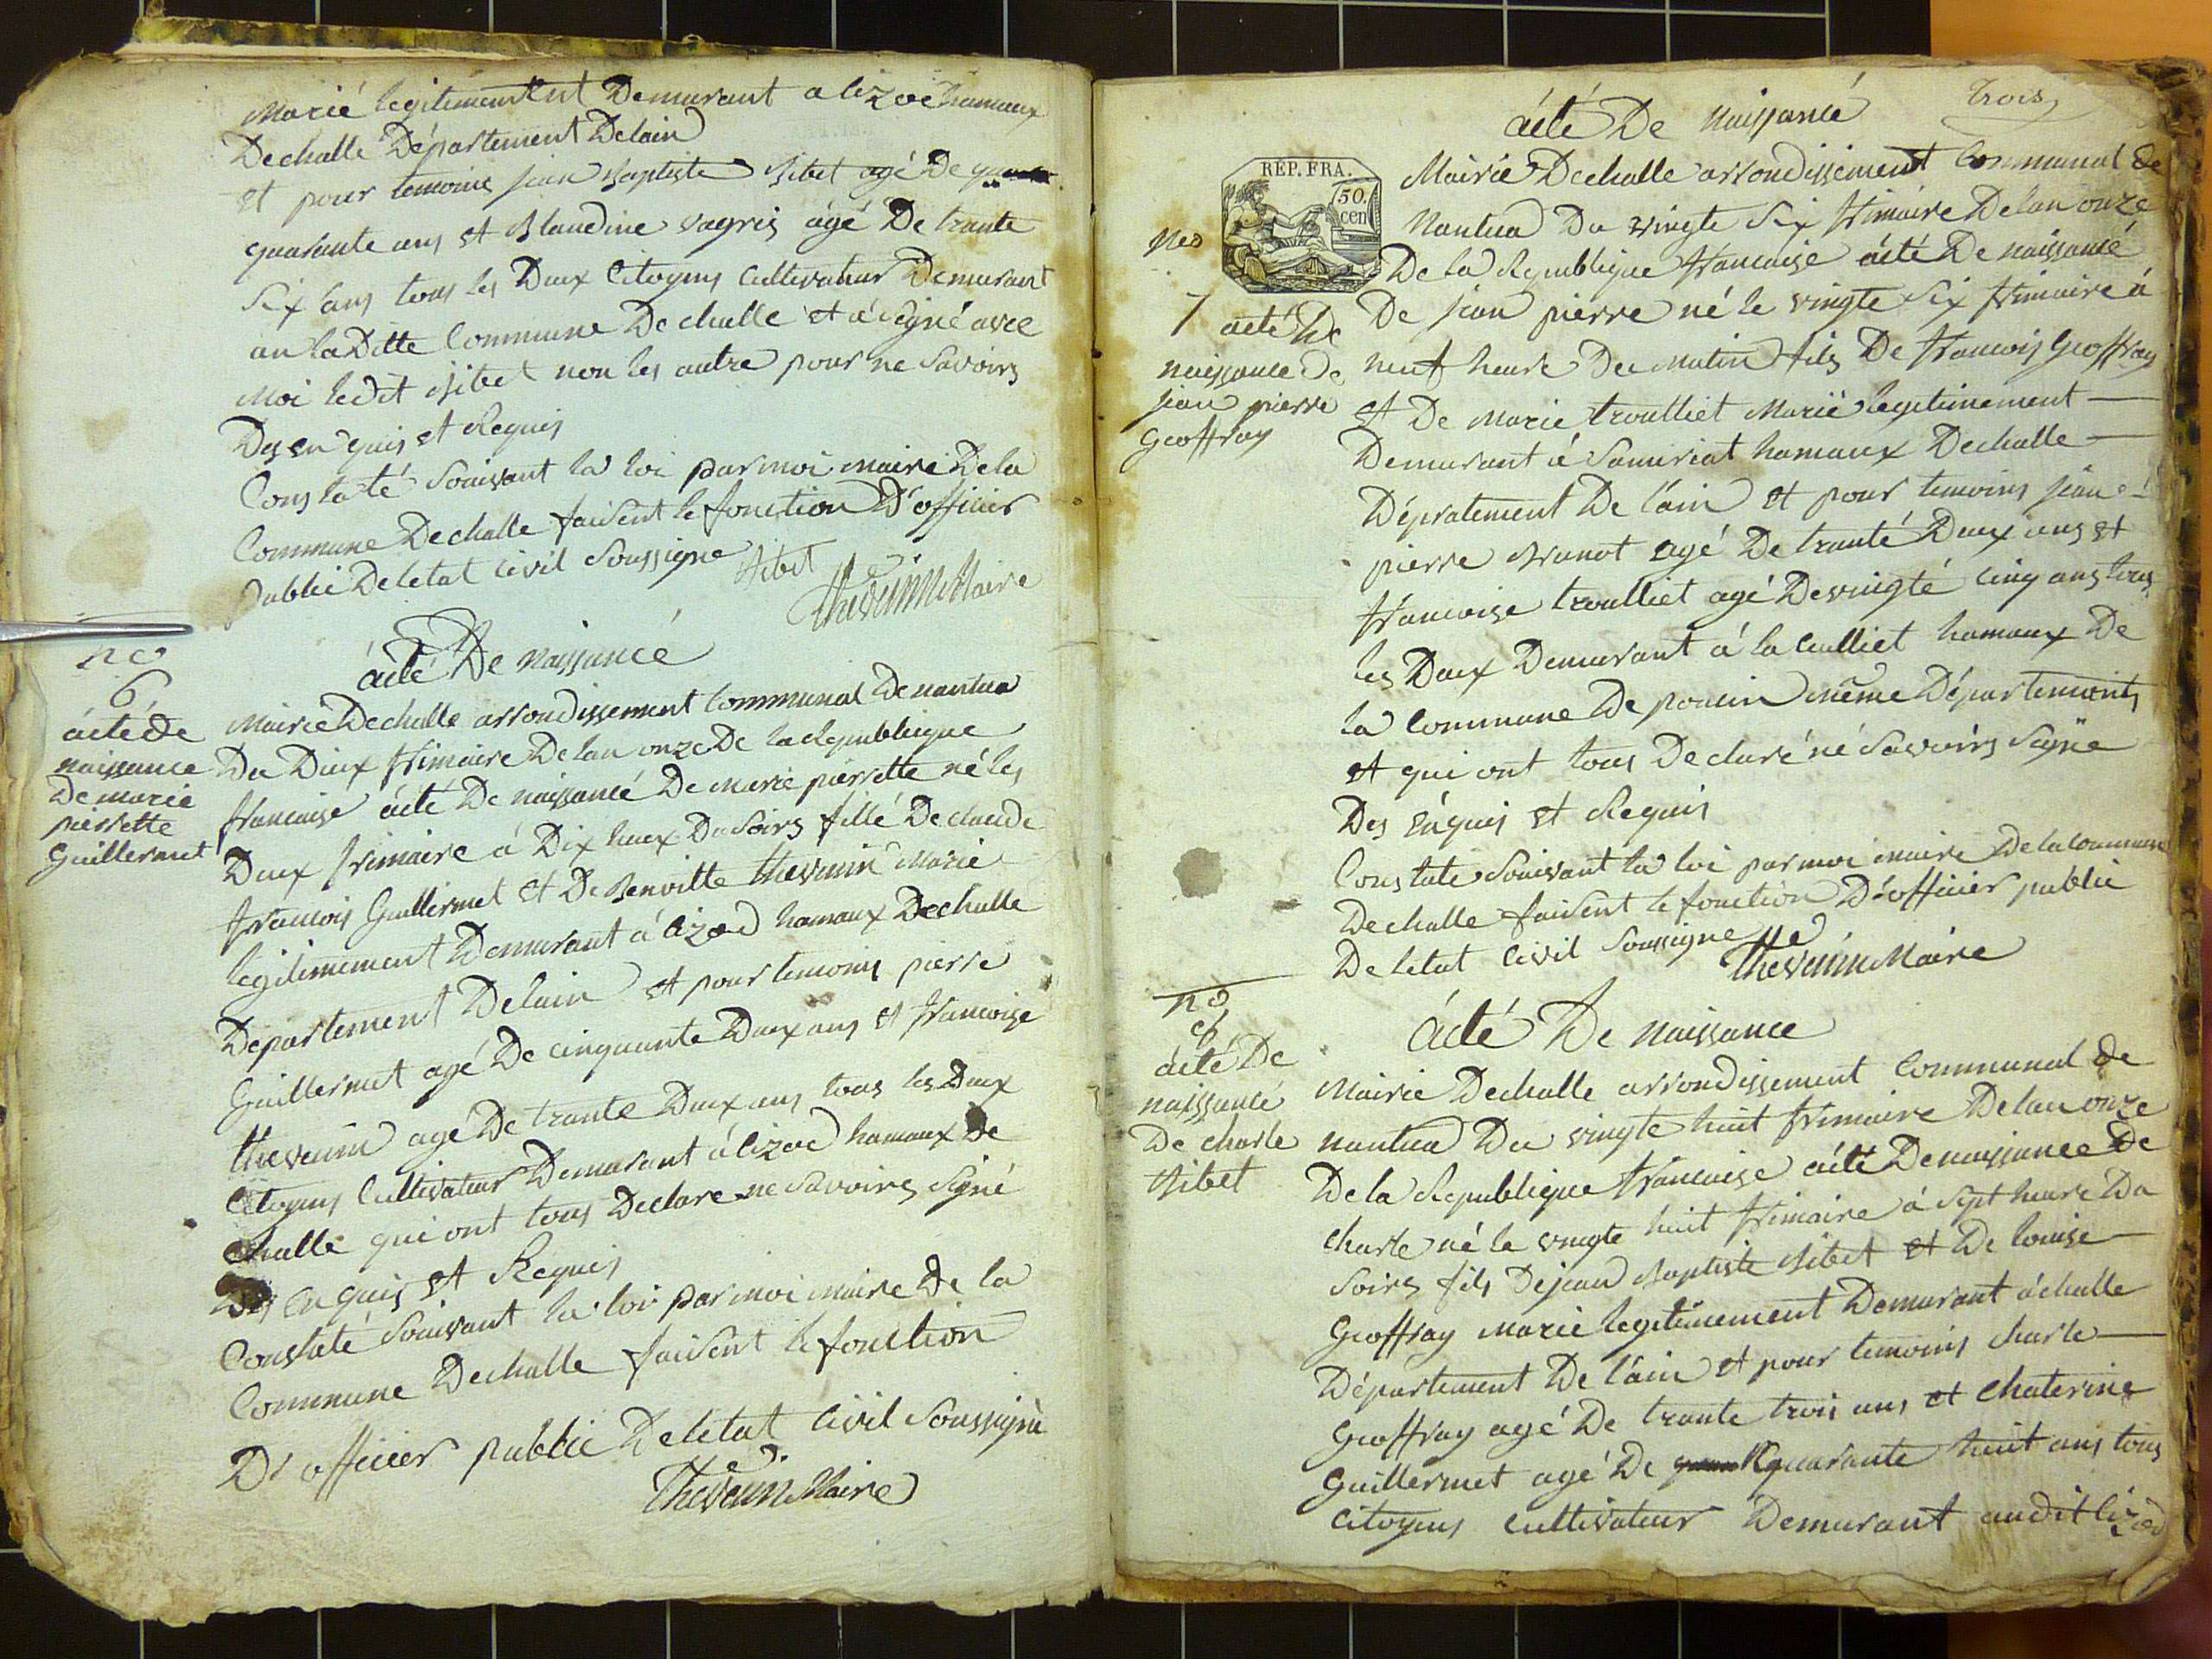 Marié legitimentent Demurant a lizoe hamaux
Dechalle Département Delain
et pour temoins jean Baptiste Sibet agé De
quarante ans et Blandine vagris agé De trante
Six ans tous les Deux Citoyens Cultivateur Demurant
au la Ditte Commune De challe et a signé avec
moi ledit Sibet non les autre pour ne Savoirs
Des en quis et Requis
Constaté Souivant la loi par moi maire Dela
Commune Dechalle faisent le fonction D'officier
public De letat civil Soussigne Sibet
Thevenin Maire
no
6
acté de
naissance
De marie
pierrette
Guillermet
acté De naissancé
Mairie Dechalle arrondissement Communal De nantua
Du Deux frimaire Delan onze De la Republique
francaise acté De naissancé De marie pierrette né les
Deux frimaire a Dix heux Du Soirs fillé De claude
francois Guillermet et De Benoitte thevenin Marié
legitimement Demurant a lizoed hamaux Dechalle
Departement Delain et pour temoins pierre
Guillermet agé De cinquante Deux ans et francoise
thevenin agé De trante Deux ans tous les Deux
Citoyens Cultivateur Demurant a lizoed hamaux De
challe qui ont tous Declare ne Savoirs Signé
Des en quis et Requis
Constaté Souivant la loi par moi maire De la
Commune Dechalle faisent le fonction
D'officier public De letat civil Soussigné
Thevenin Maire
trois
acté De naissancé
REP. FRA.
50.
cen
no
7
acté De
naissance De
jean pierre
Geoffray
Mairie Dechalle arrondissement Communal De
Nantua Du vingte Six frimaire Delan onze
De la Republique francaise acté De naissancé
De jean pierre né le vingte Six frimaire a
neuf heure Du matin fils De francois Geoffray
et De marie troulliet Marié legitimement
Demurant a Samiriat hamaux Dechalle
Dépratement De lain et pour temoins jean
pierre Brunot agé De tranté Deux ans et
francoise troulliet agé De vingté cinq ans tous
les Deux Demurant á la Culliet hamaux De
la Commune De poncin même Département
et qui ont tous Declaré né Savoirs Signe
Des énquis et Requis
Constate Souivant la loi par moi maire De la commune
Dechalle faisent le fonction D'officier public
De letat civil Soussigne
Thevenin Maire
no
8
acté De
naissancé
De charle
Sibet
Acté De naissance
Mairie Dechalle arrondissement Communal De
nantua Du vingte huit frimaire Delan onze
De la Republique francaise acté De naissance De
charle né le vingte huit frimaire á Sept heure Du
Soirs fils De jean Baptiste Sibet et De louise
Geoffray Marié legitimement Demurant á challe
Département De lain et pour temoins charle
Geoffray agé De trante trois ans et chaterine
Guillermet agé De quarante huit ans tous
Citoyens Cultivateur Demurant audit lizoed